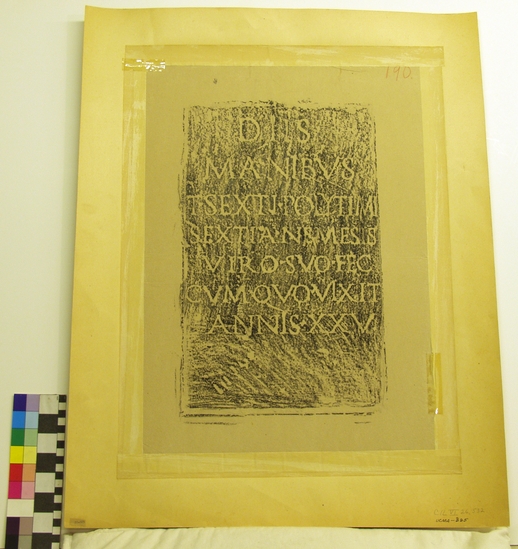 190.
DIS
MANIBVS
T SEXTI · POLYTIMI
SEXTIA · NEMESIS
VIRO · SVO · FEC
CVM QVO VIXIT
ANNIS · XXV